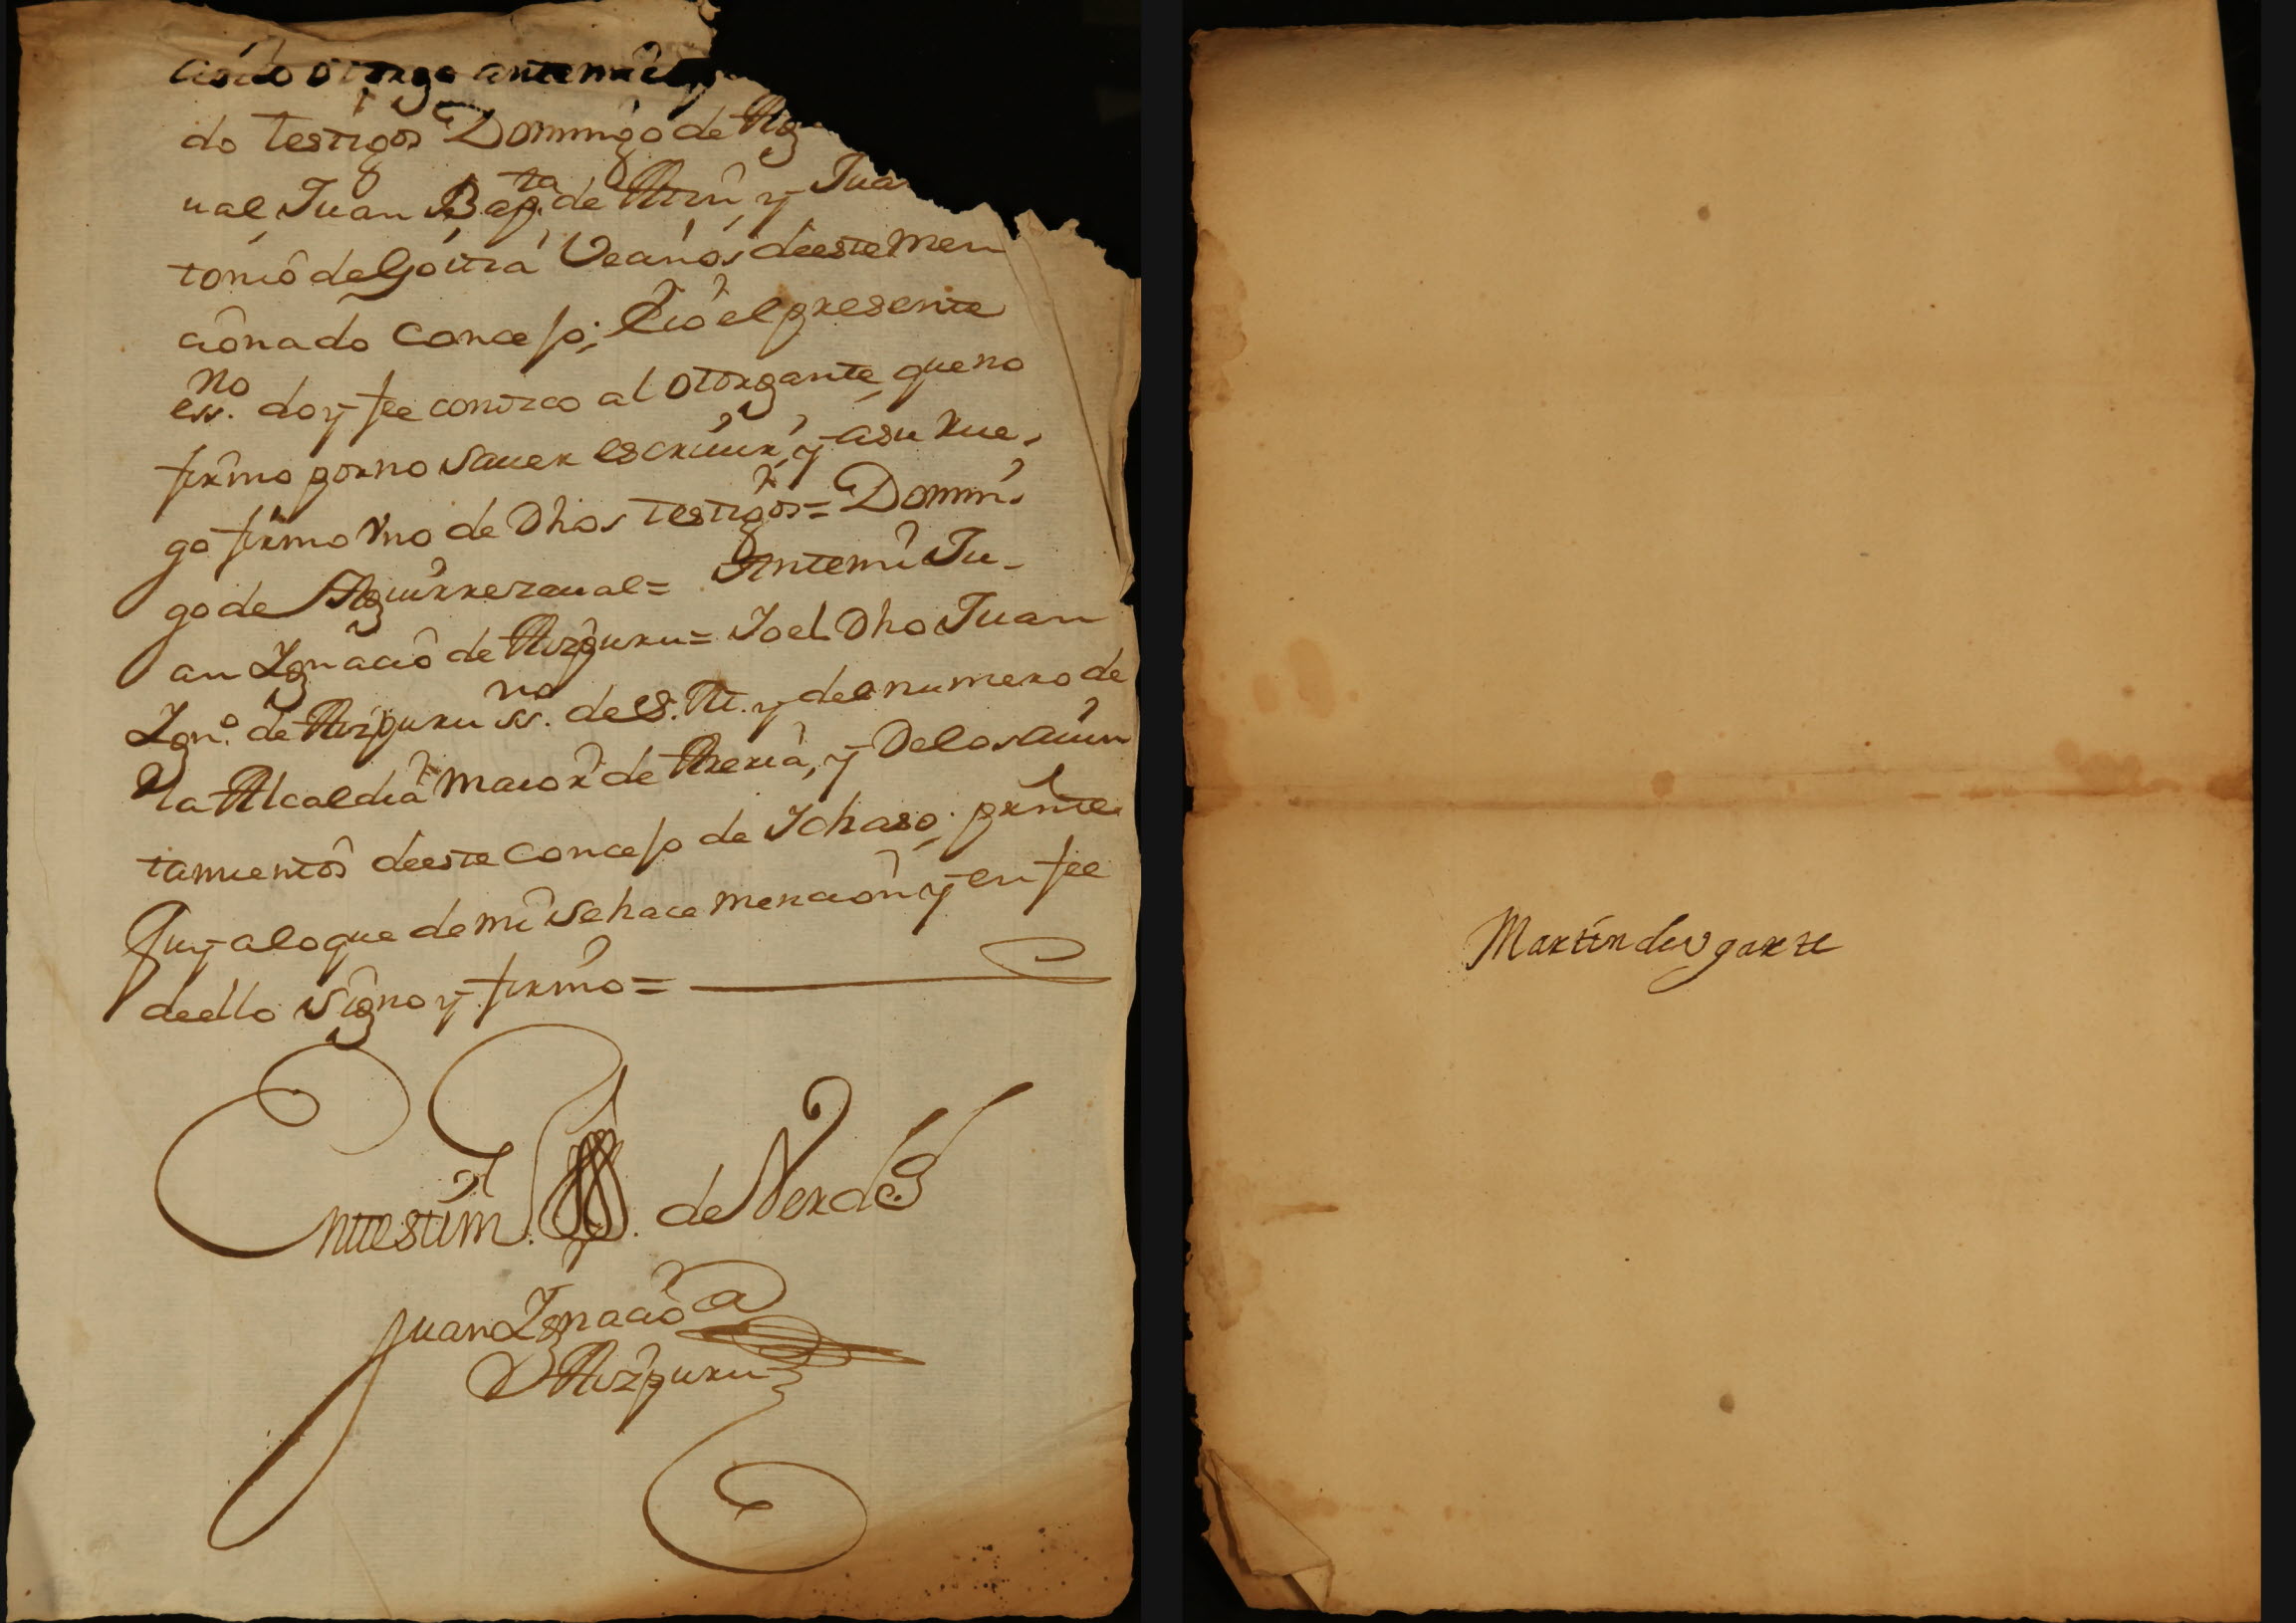 asi lo otorgo ante mi
do testigos Domingo de Ag
ual, Juan Bap.ta de y Jua
tonio de Goitia Vecinos de este men
cionado Concejo; Eio el presente
ess.no doy fee conozco al otorgante, que no
firmo por no saver escriuir, y a su Rue,
go firmo Vno de Dhos testigos = Domin,
go de Aguirrezaual = Ante mi Ju-
an Ignacio de Aizpuru = Io el Dho Juan
Ign.o de Aizpuru ss.no de S. M. y del numero de
la Alcaldia maior de Areria, y De los aiun
tamientos de este Concejo de Ichaso; prnte
fuy a lo que de mi se hace mencion y en fee
de ello signo y firmo =
En testim.o de Verdad
Juan Ignacio
D Aizpuru
Martin de vgarte